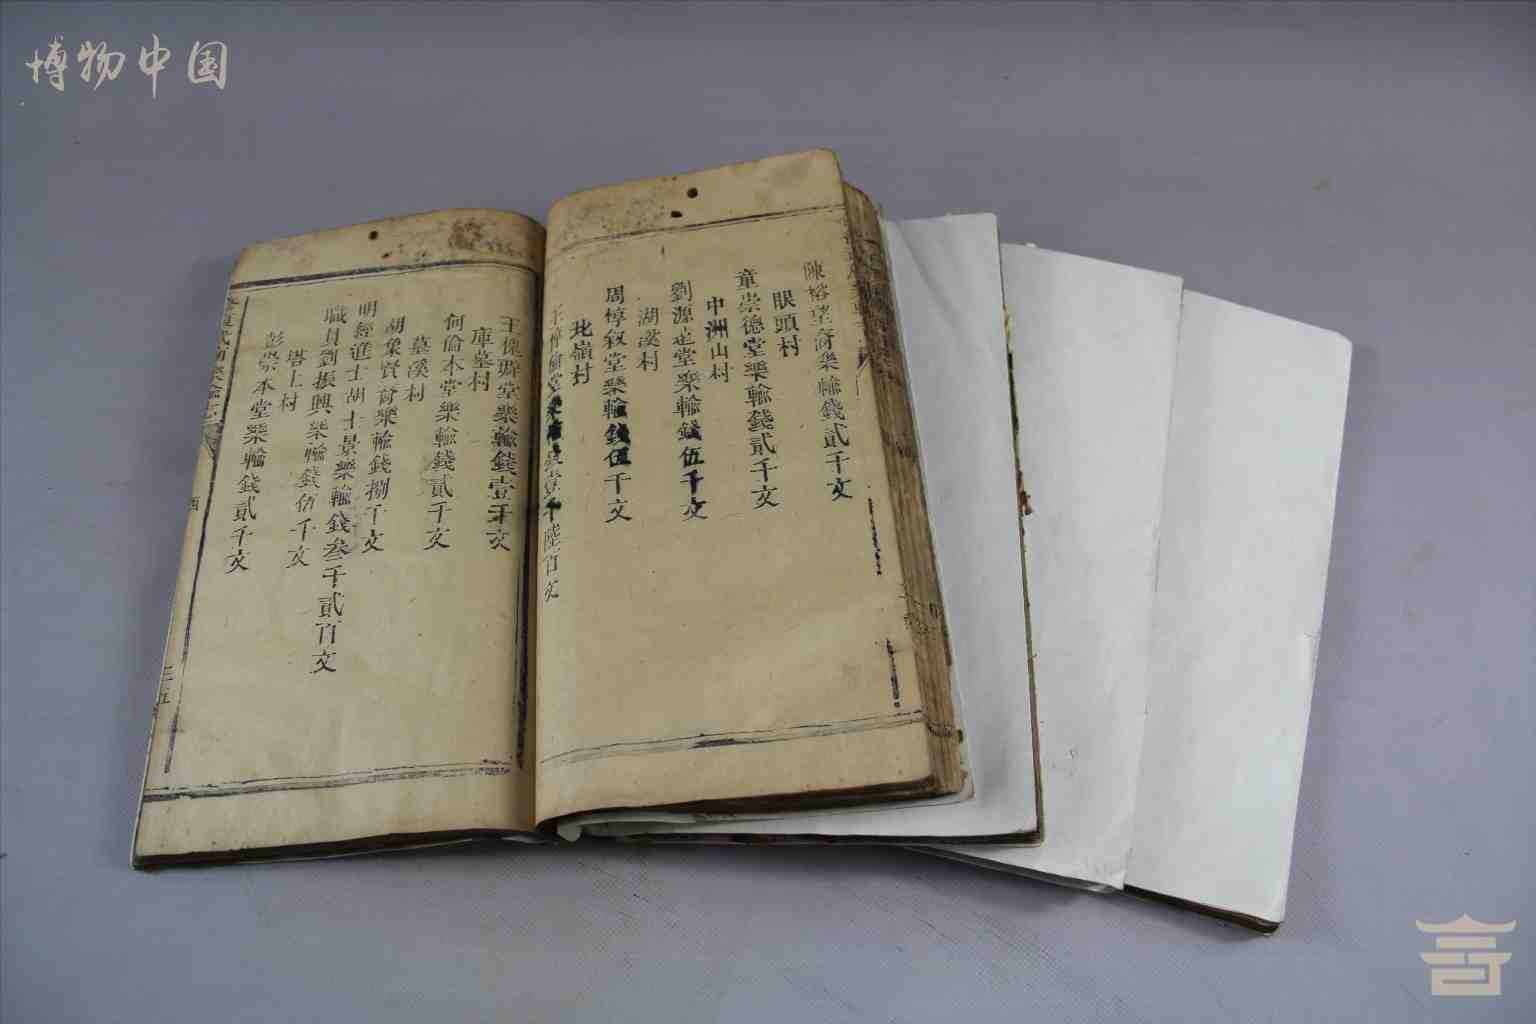 博物中国
陳榕望裔樂輸錢貳千文
眼頭村
童崇德堂樂輸錢貳千文
中洲山村
劉源遠堂樂輸錢伍千文
湖溪村
周惇叙堂樂輸錢伍千文
北嶺村
王惇倫堂樂輸錢壹千陸百文
王槐縣堂樂輸錢壹千文
庫墓村
何倫本堂樂輸錢貳千文
墓溪村
胡象賢裔樂輸錢捌千文
明經進士胡士景樂輸錢叁千貳百文
職員劉振興樂輸錢伍千文
塔上村
彭崇本堂樂輸錢貳千文